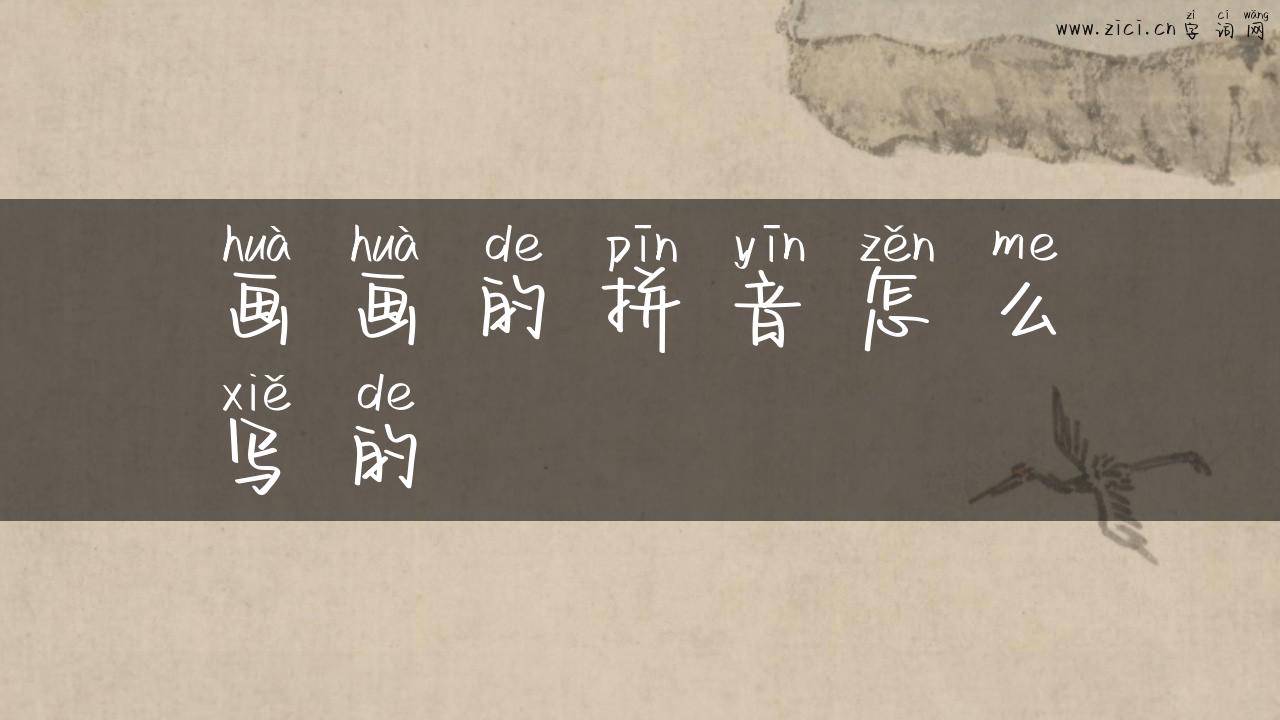 zì cí wǎng
www.zici.cn字词网
huà huà de pīn yīn zěn me
画画的拼音怎么
xiě de
写的